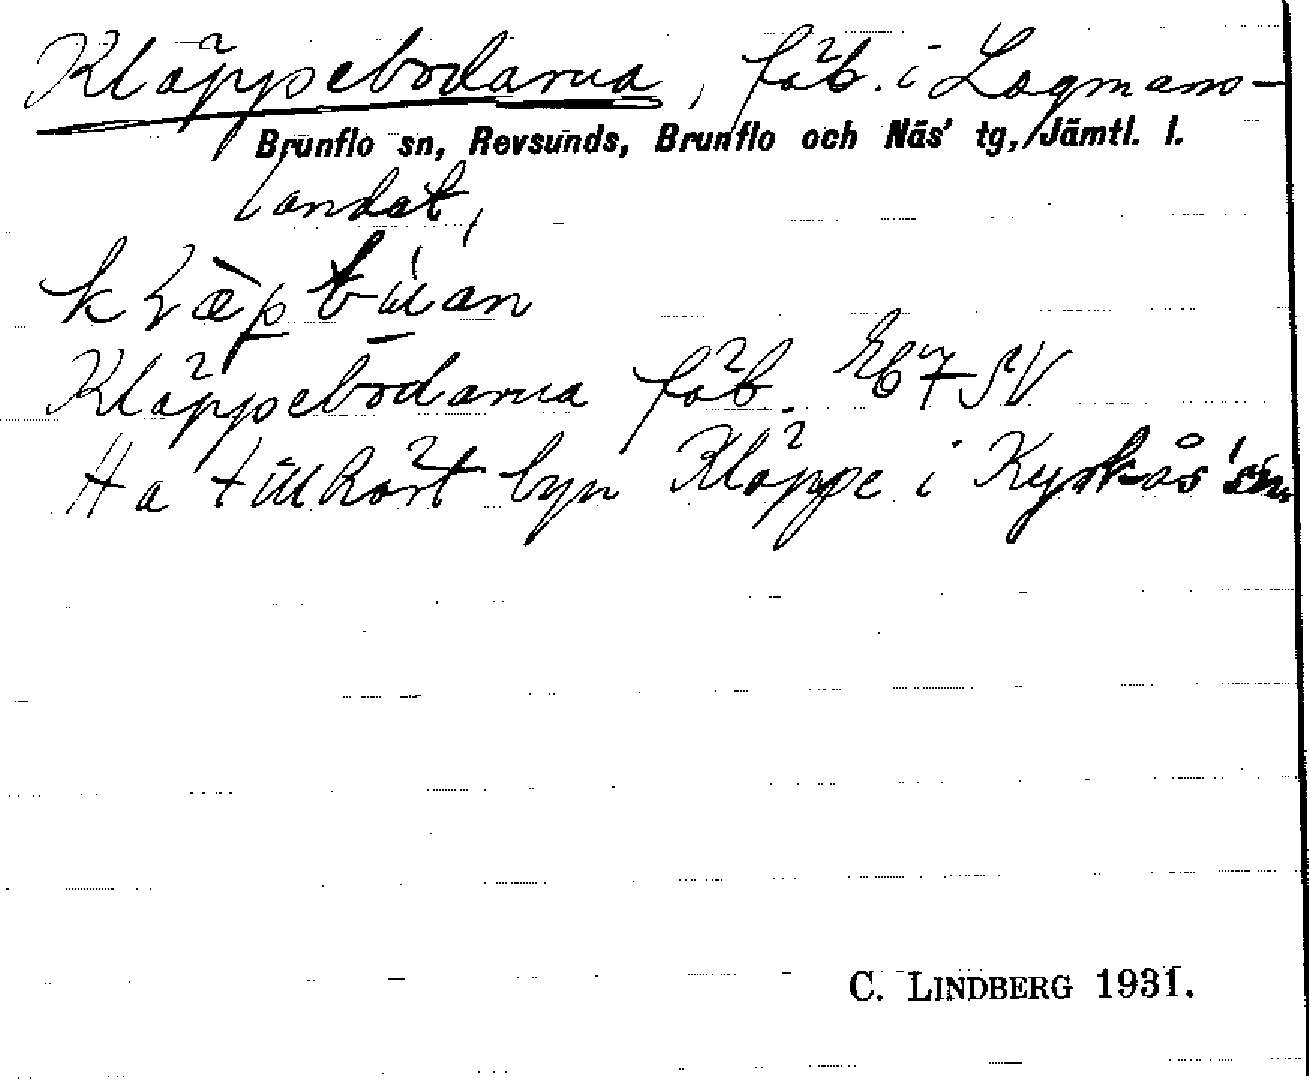 Kläppebodarna, fäb. i Lagmans-
Brunflo sn, Revsunds, Brunflo och Näs' tg, Jämtl. l.
landet,
Kläppebodarna fäb. Eb 7 SV
Ha tillhört byn Kläppe i Kyrkås sn.
C. LINDBERG 1931.